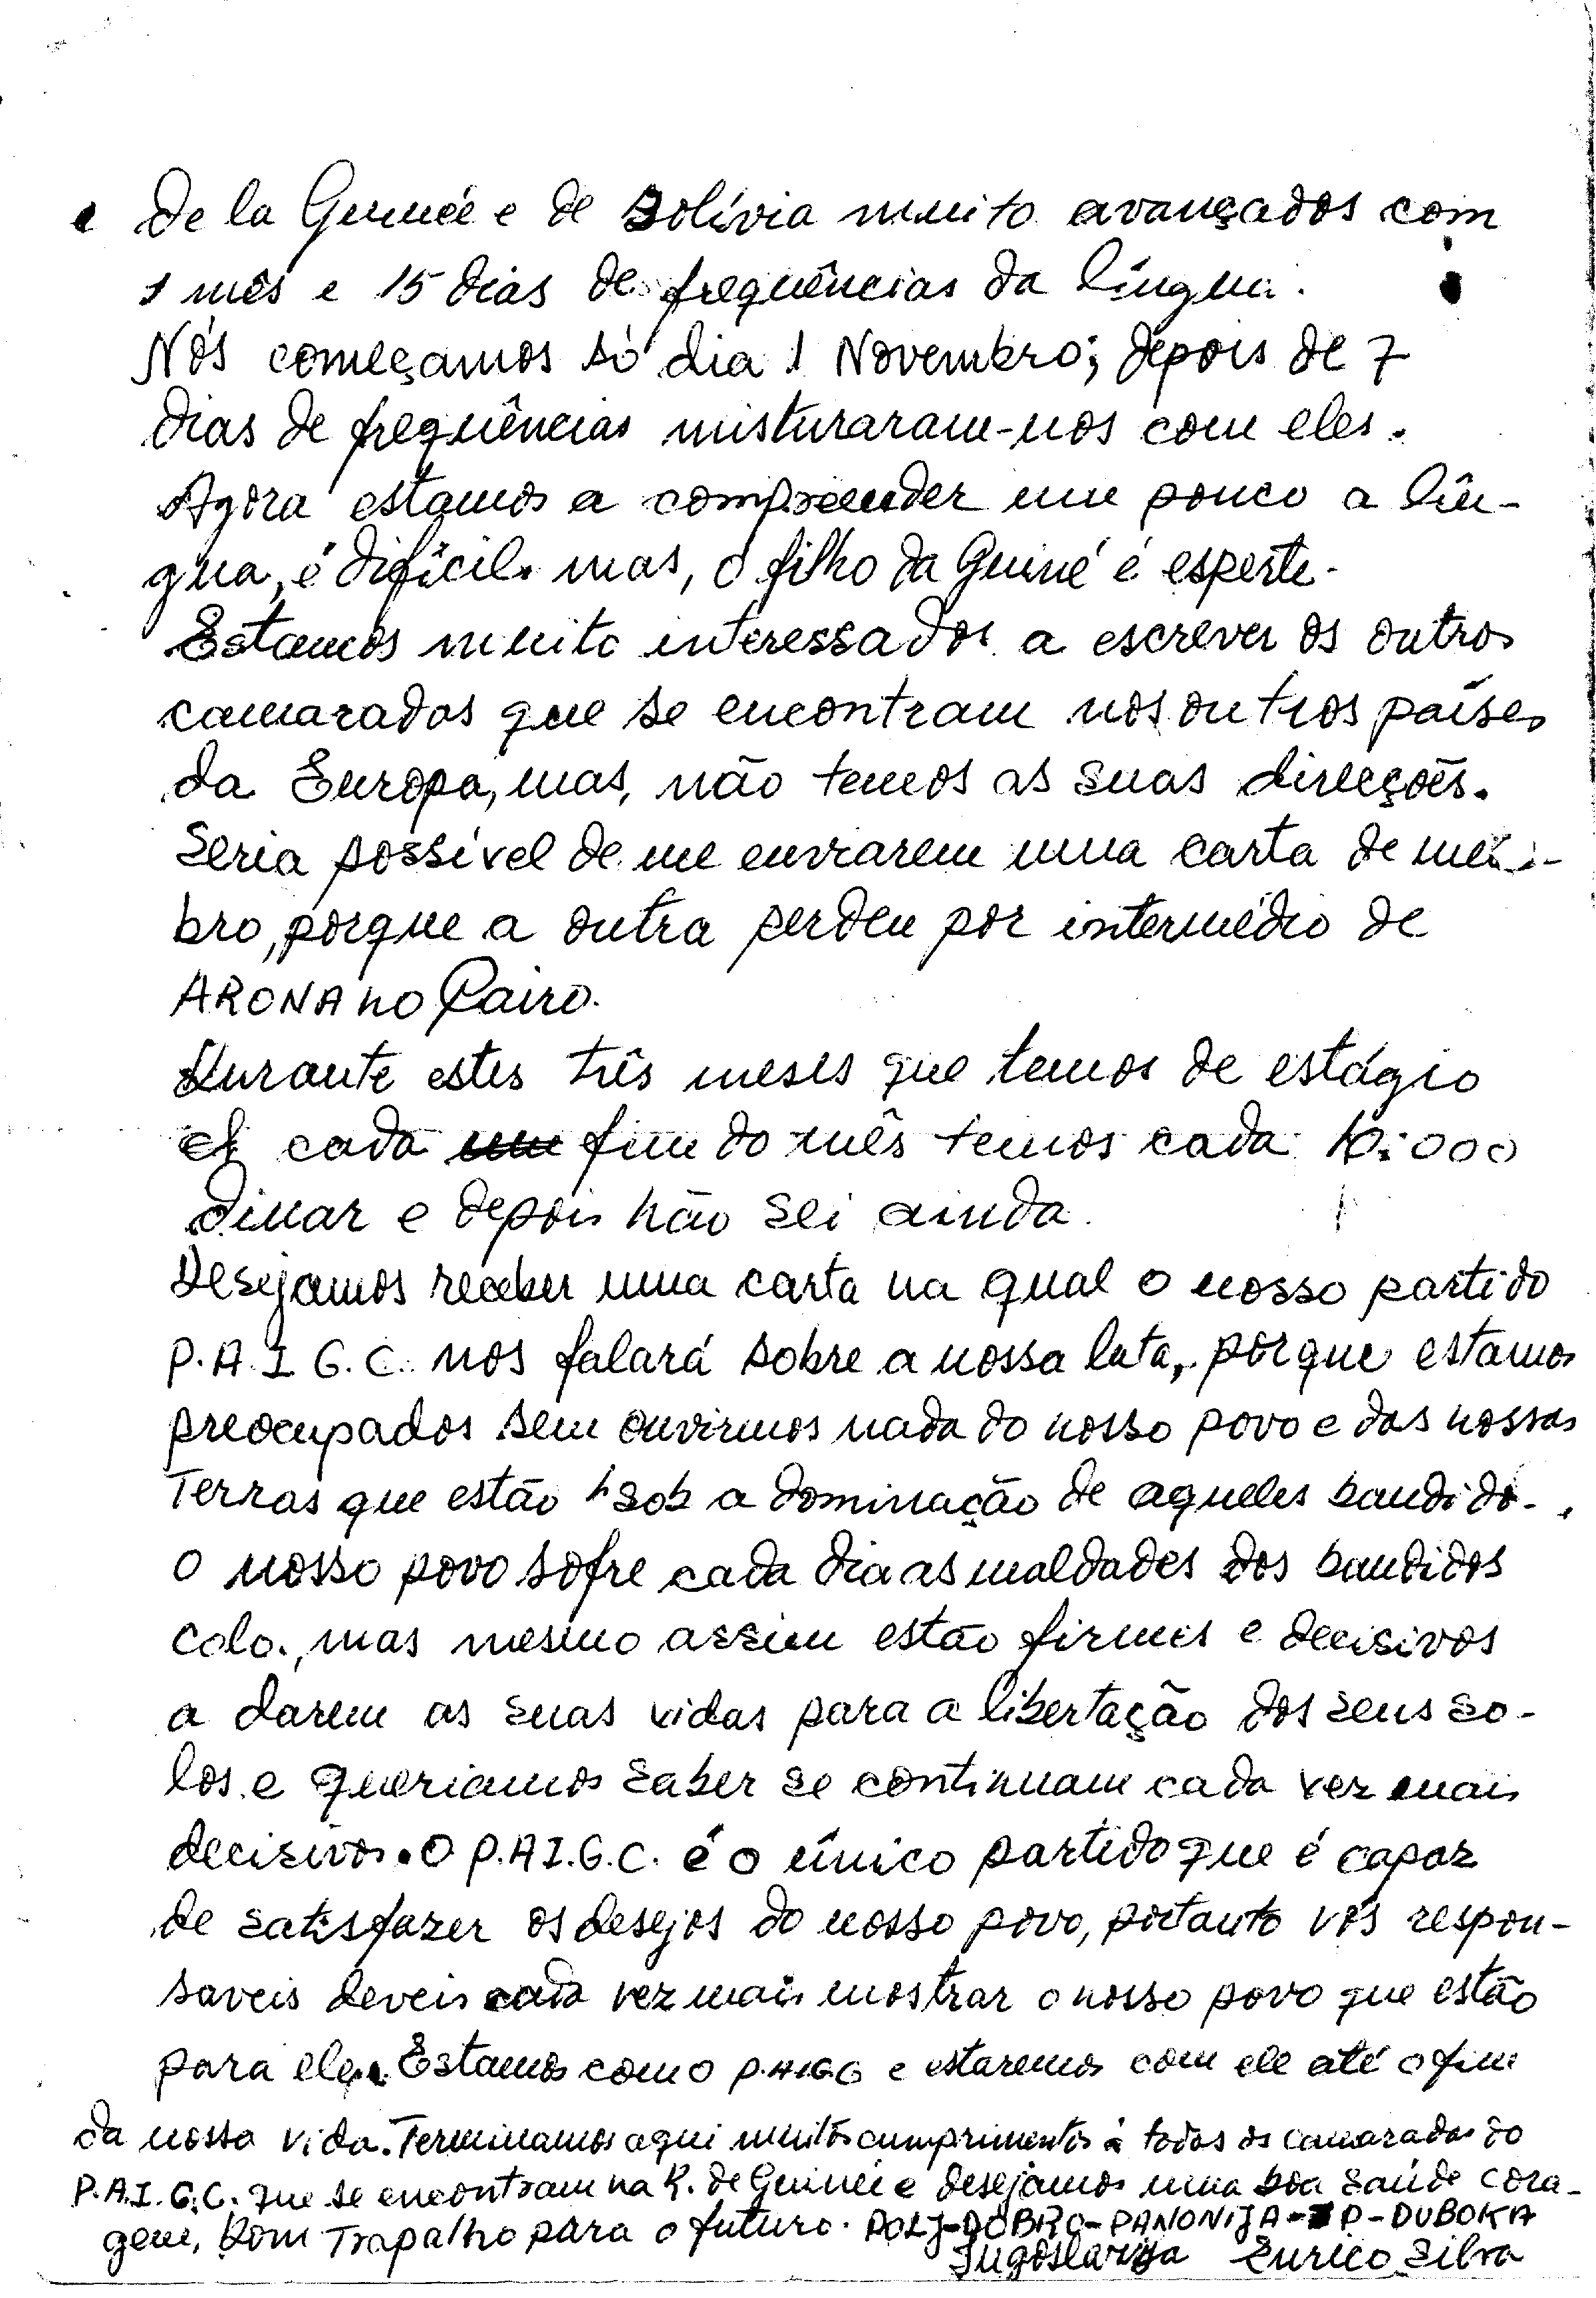 de la Guineé e de Bolívia muito avançados com
1 mês e 15 dias de frequências da língua.
Nós começamos só dia 1 Novembro; depois de 7
dias de frequências misturaram-nos com eles.
Agora estamos a compreender um pouco a lín-
gua, é difícil. mas, o filho da Guiné é esperte.
Estamos muito interessados a escrever os outros
camaradas que se encontram nos outros países
da Europa, mas, não temos as suas direções.
Seria possível de me enviarem uma carta de mem-
bro, porque a outra perdeu por intermédio de
ARONA no Cairo.
Durante estes três meses que temos de estágio
cada fim do mês temos cada 10.000
dinar e depois não sei ainda.
Desejamos receber uma carta na qual o nosso partido
P.A.I G.C. nos falará sobre a nossa luta, porque estamos
preocupados sem ouvirmos nada do nosso povo e das nossas
Terras que estão sob a dominação de aqueles bandido.
O nosso povo sofre cada dia as maldades dos bandidos
colo., mas mesmo assim estão firmes e decisivos
a darem as suas vidas para a libertação dos seus so-
los e queriamos saber se continuam cada vez mais
decisivos. O P.A.I.G.C. é o único partido que é capaz
de satisfazer os desejos do nosso povo, portanto vós respon-
saveis deveis cada vez mais mostrar o nosso povo que estão
para ele. Estamos com o P.AIGC e estaremos com ele até o fim
da nossa vida. Terminamos aqui muitos cumprimentos à todos os camaradas do
P.A.I.G.C. que se encontram na R. de Guineé e desejamos uma boa saúde cora-
gem, bom Trapalho para o futuro. POLJ-DOBRO-PANONIJA-P-DUBOKA
Jugoslavija Eurico Silva